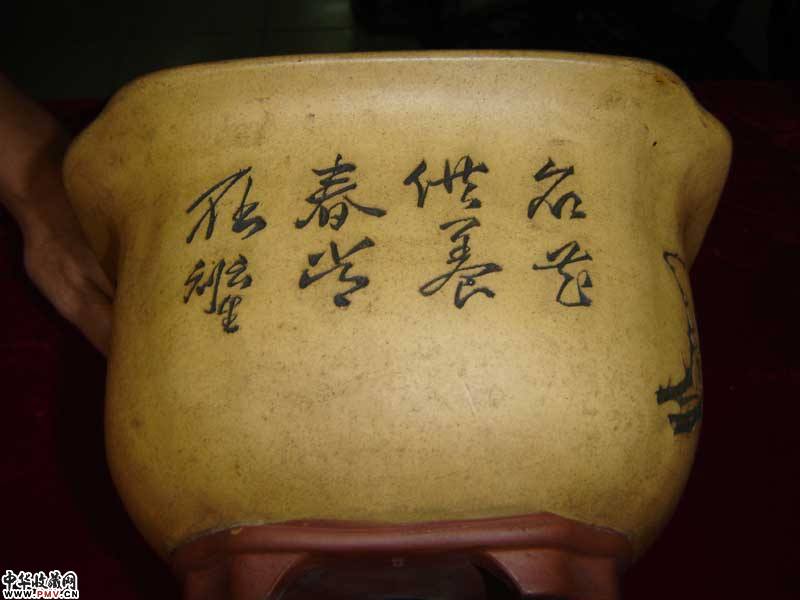 名花
供養
春常
中华收藏网
WWW.PMV.CN